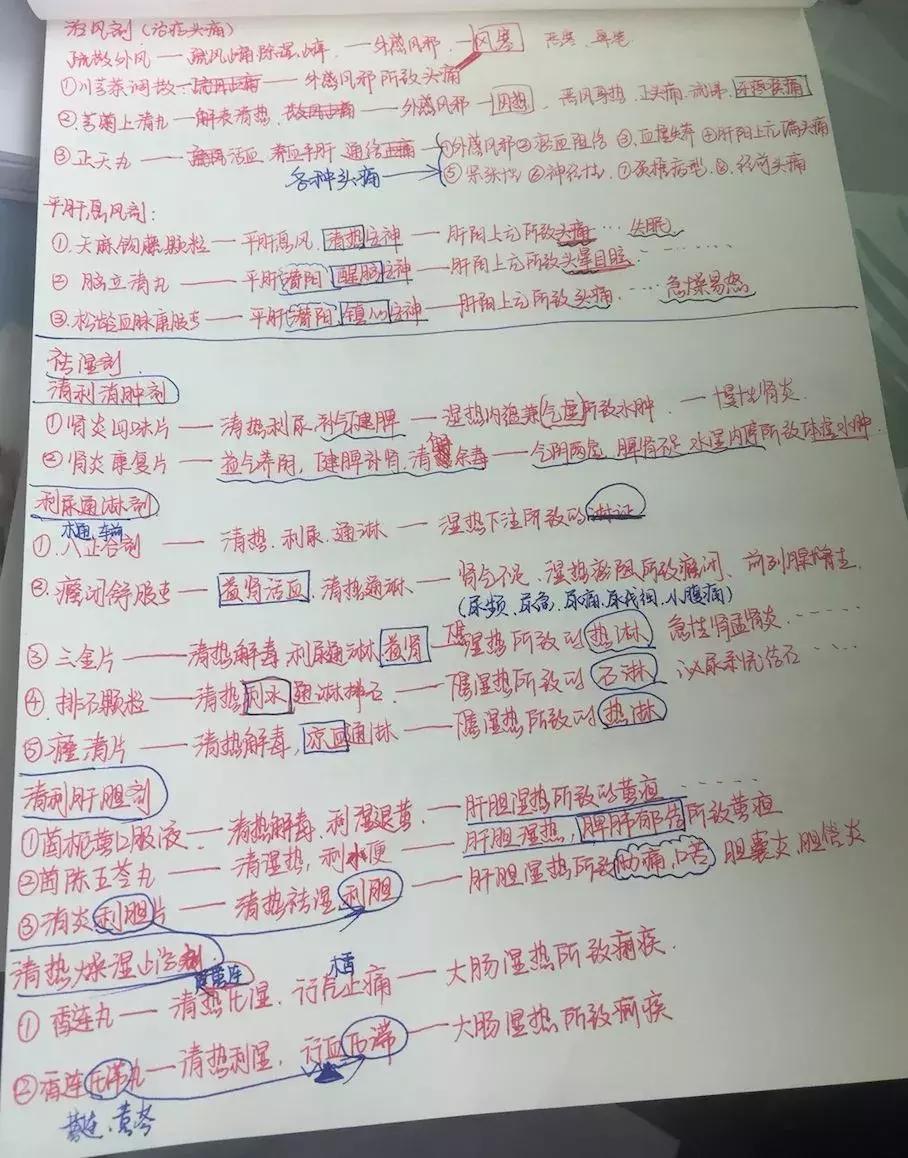 治风剂（治症头痛）
疏散外风 — 疏风止痛 除湿止痒. — 外感风邪. — 风寒 恶寒、鼻塞
①川芎茶调散 — 疏风止痛 — 外感风邪所致头痛
②芎菊上清丸 — 解表清热. 散风止痛 — 外感风邪 — 风热. 恶风身热. 正头痛. 流涕. 牙疼喉痛
③正天丸 — 活血 养血平肝 通络止痛 — ①外感风邪②瘀血阻络 ③.血虚失养 ④肝阳上亢 偏头痛
各种头痛 ⑤紧张性 ⑥神经性. ⑦颈椎病型. ⑧.经前头痛
平肝息风剂：
①.天麻钩藤颗粒 — 平肝息风. 清热安神 — 肝阳上亢所致头痛… 失眠
② 脑立清丸 — 平肝潜阳 醒脑安神 — 肝阳上亢所致头晕目眩
③.松龄血脉康胶囊 — 平肝潜阳. 镇心安神 — 肝阳上亢所致头痛. … 急躁易怒
祛湿剂.
清利消肿剂
①肾炎四味片 — 清热利尿 补气健脾 — 湿热内蕴兼气虚所致水肿. — 慢性肾炎
②肾炎康复片 — 益气养阴, 健脾补肾, 清解余毒 — 气阴两虚, 脾肾不足 水湿内停所致体虚水肿
利尿通淋剂
木通、车前
①.八正合剂 — 清热.利尿.通淋 — 湿热下注所致的淋证
②.癃闭舒胶囊 — 益肾活血, 清热通淋 — 肾气不足、湿热瘀阻所致癃闭、前列腺增生
(尿频、尿急、尿痛,尿线细,小腹痛)
③ 三金片 — 清热解毒 利尿通淋 益肾 — 下焦湿热所致的热淋 急性肾盂肾炎
④.排石颗粒 — 清热利水通淋排石 — 下焦湿热所致的石淋 泌尿系统结石
⑤癃清片 — 清热解毒, 凉血通淋 — 下焦湿热所致的热淋
清利肝胆剂
①茵栀黄口服液 — 清热解毒、利湿退黄 — 肝胆湿热所致的黄疸
②茵陈五苓丸 — 清湿热, 利小便 — 肝胆湿热, 脾肺郁结所致黄疸
③消炎利胆片 — 清热祛湿 利胆 — 肝胆湿热所致胁痛,口苦 胆囊炎,胆管炎
清热燥湿止泻剂
黄连 木香
① 香连丸 — 清热化湿、行气止痛 — 大肠湿热所致痢疾.
②香连化滞丸 — 清热利湿, 行血化滞 — 大肠湿热所致痢疾
黄连、黄芩